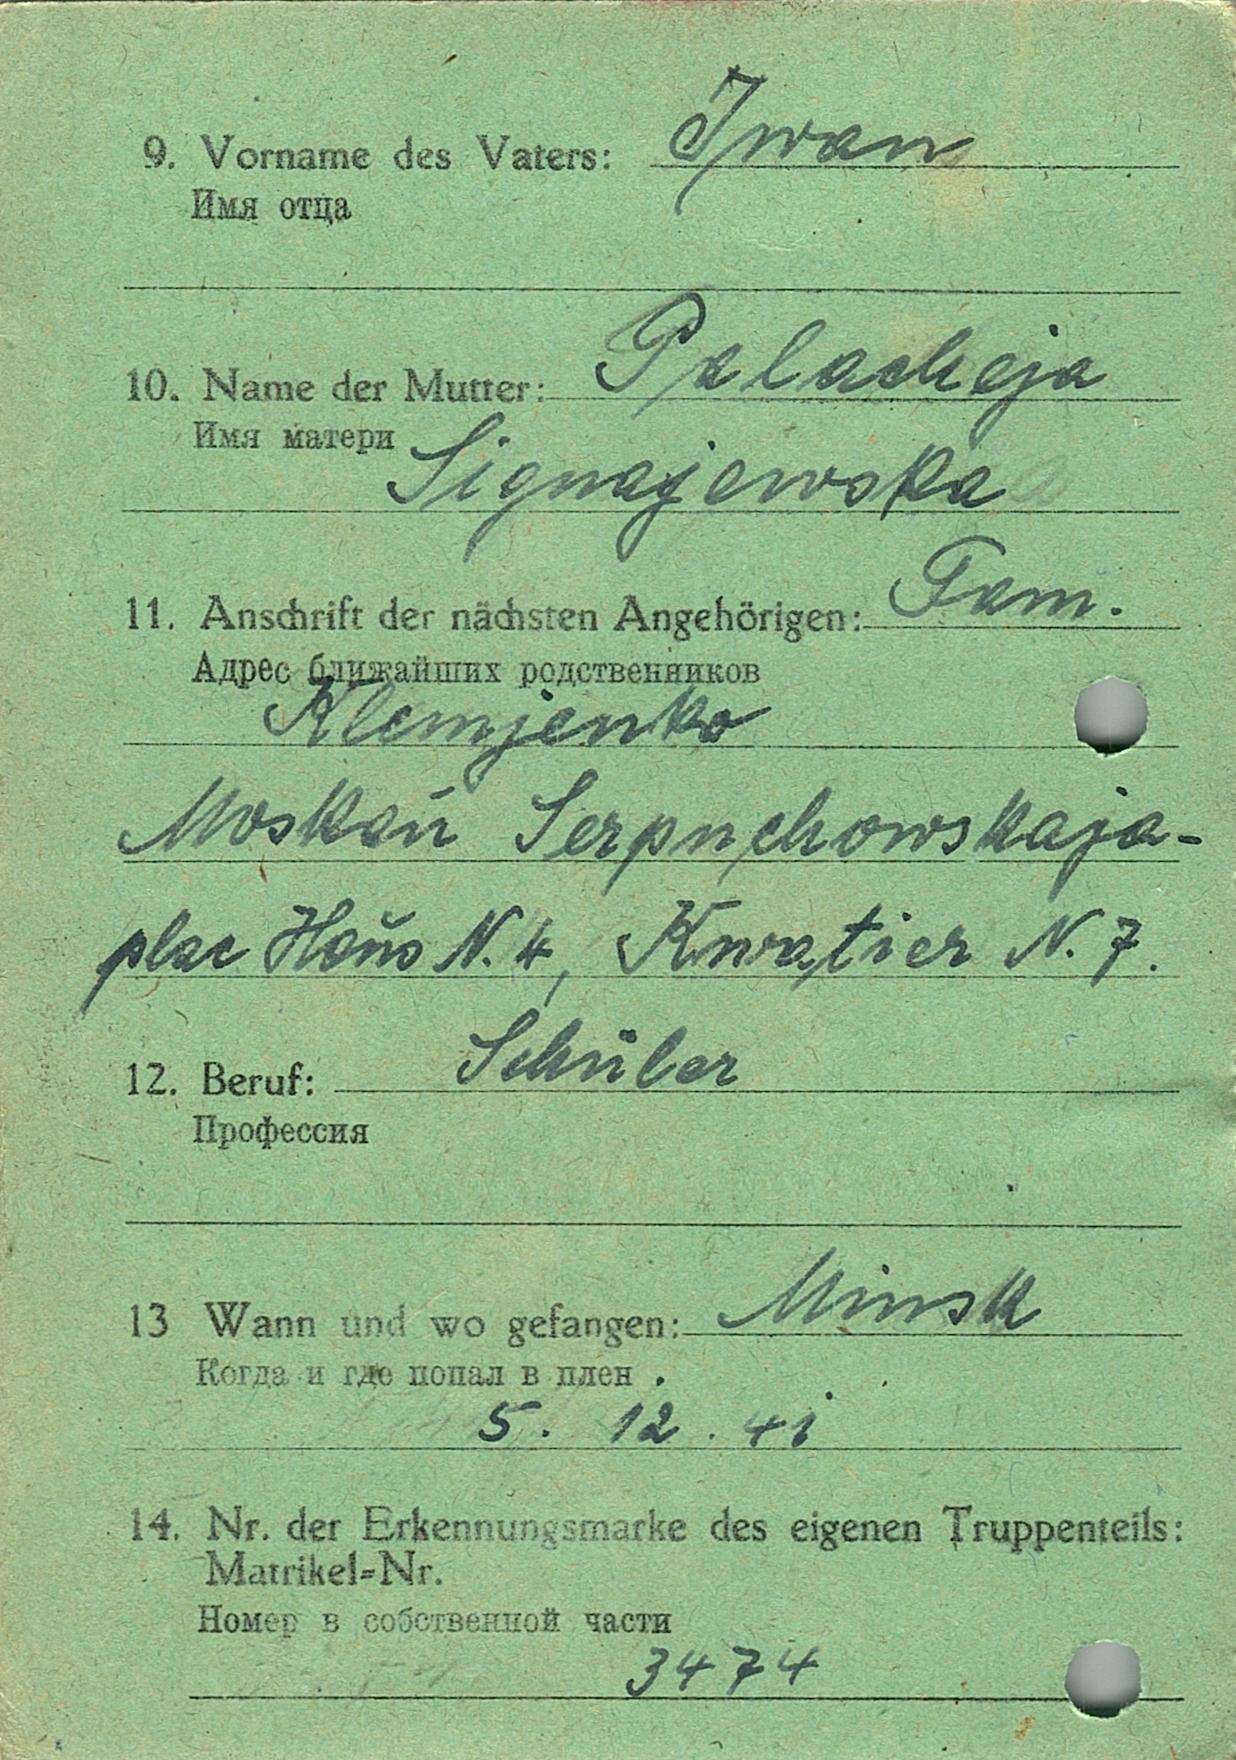 9. Vorname des Vaters: Iwan
Имя отца
10. Name der Mutter: Palacheja
Имя матери
Signajewska
11. Anschrift der nächsten Angehörigen: Fam.
Адрес ближайших родственников
Klemjenko
Moskau Serpuchowskaja-
plac Haus N. 4, Kwatier N. 7.
12. Beruf: Schüler
Профессия
13 Wann und wo gefangen: Minsk
Когда и где попал в плен
5. 12. 41
14. Nr. der Erkennungsmarke des eigenen Truppenteils:
Matrikel-Nr.
Номер в собственной части
3474